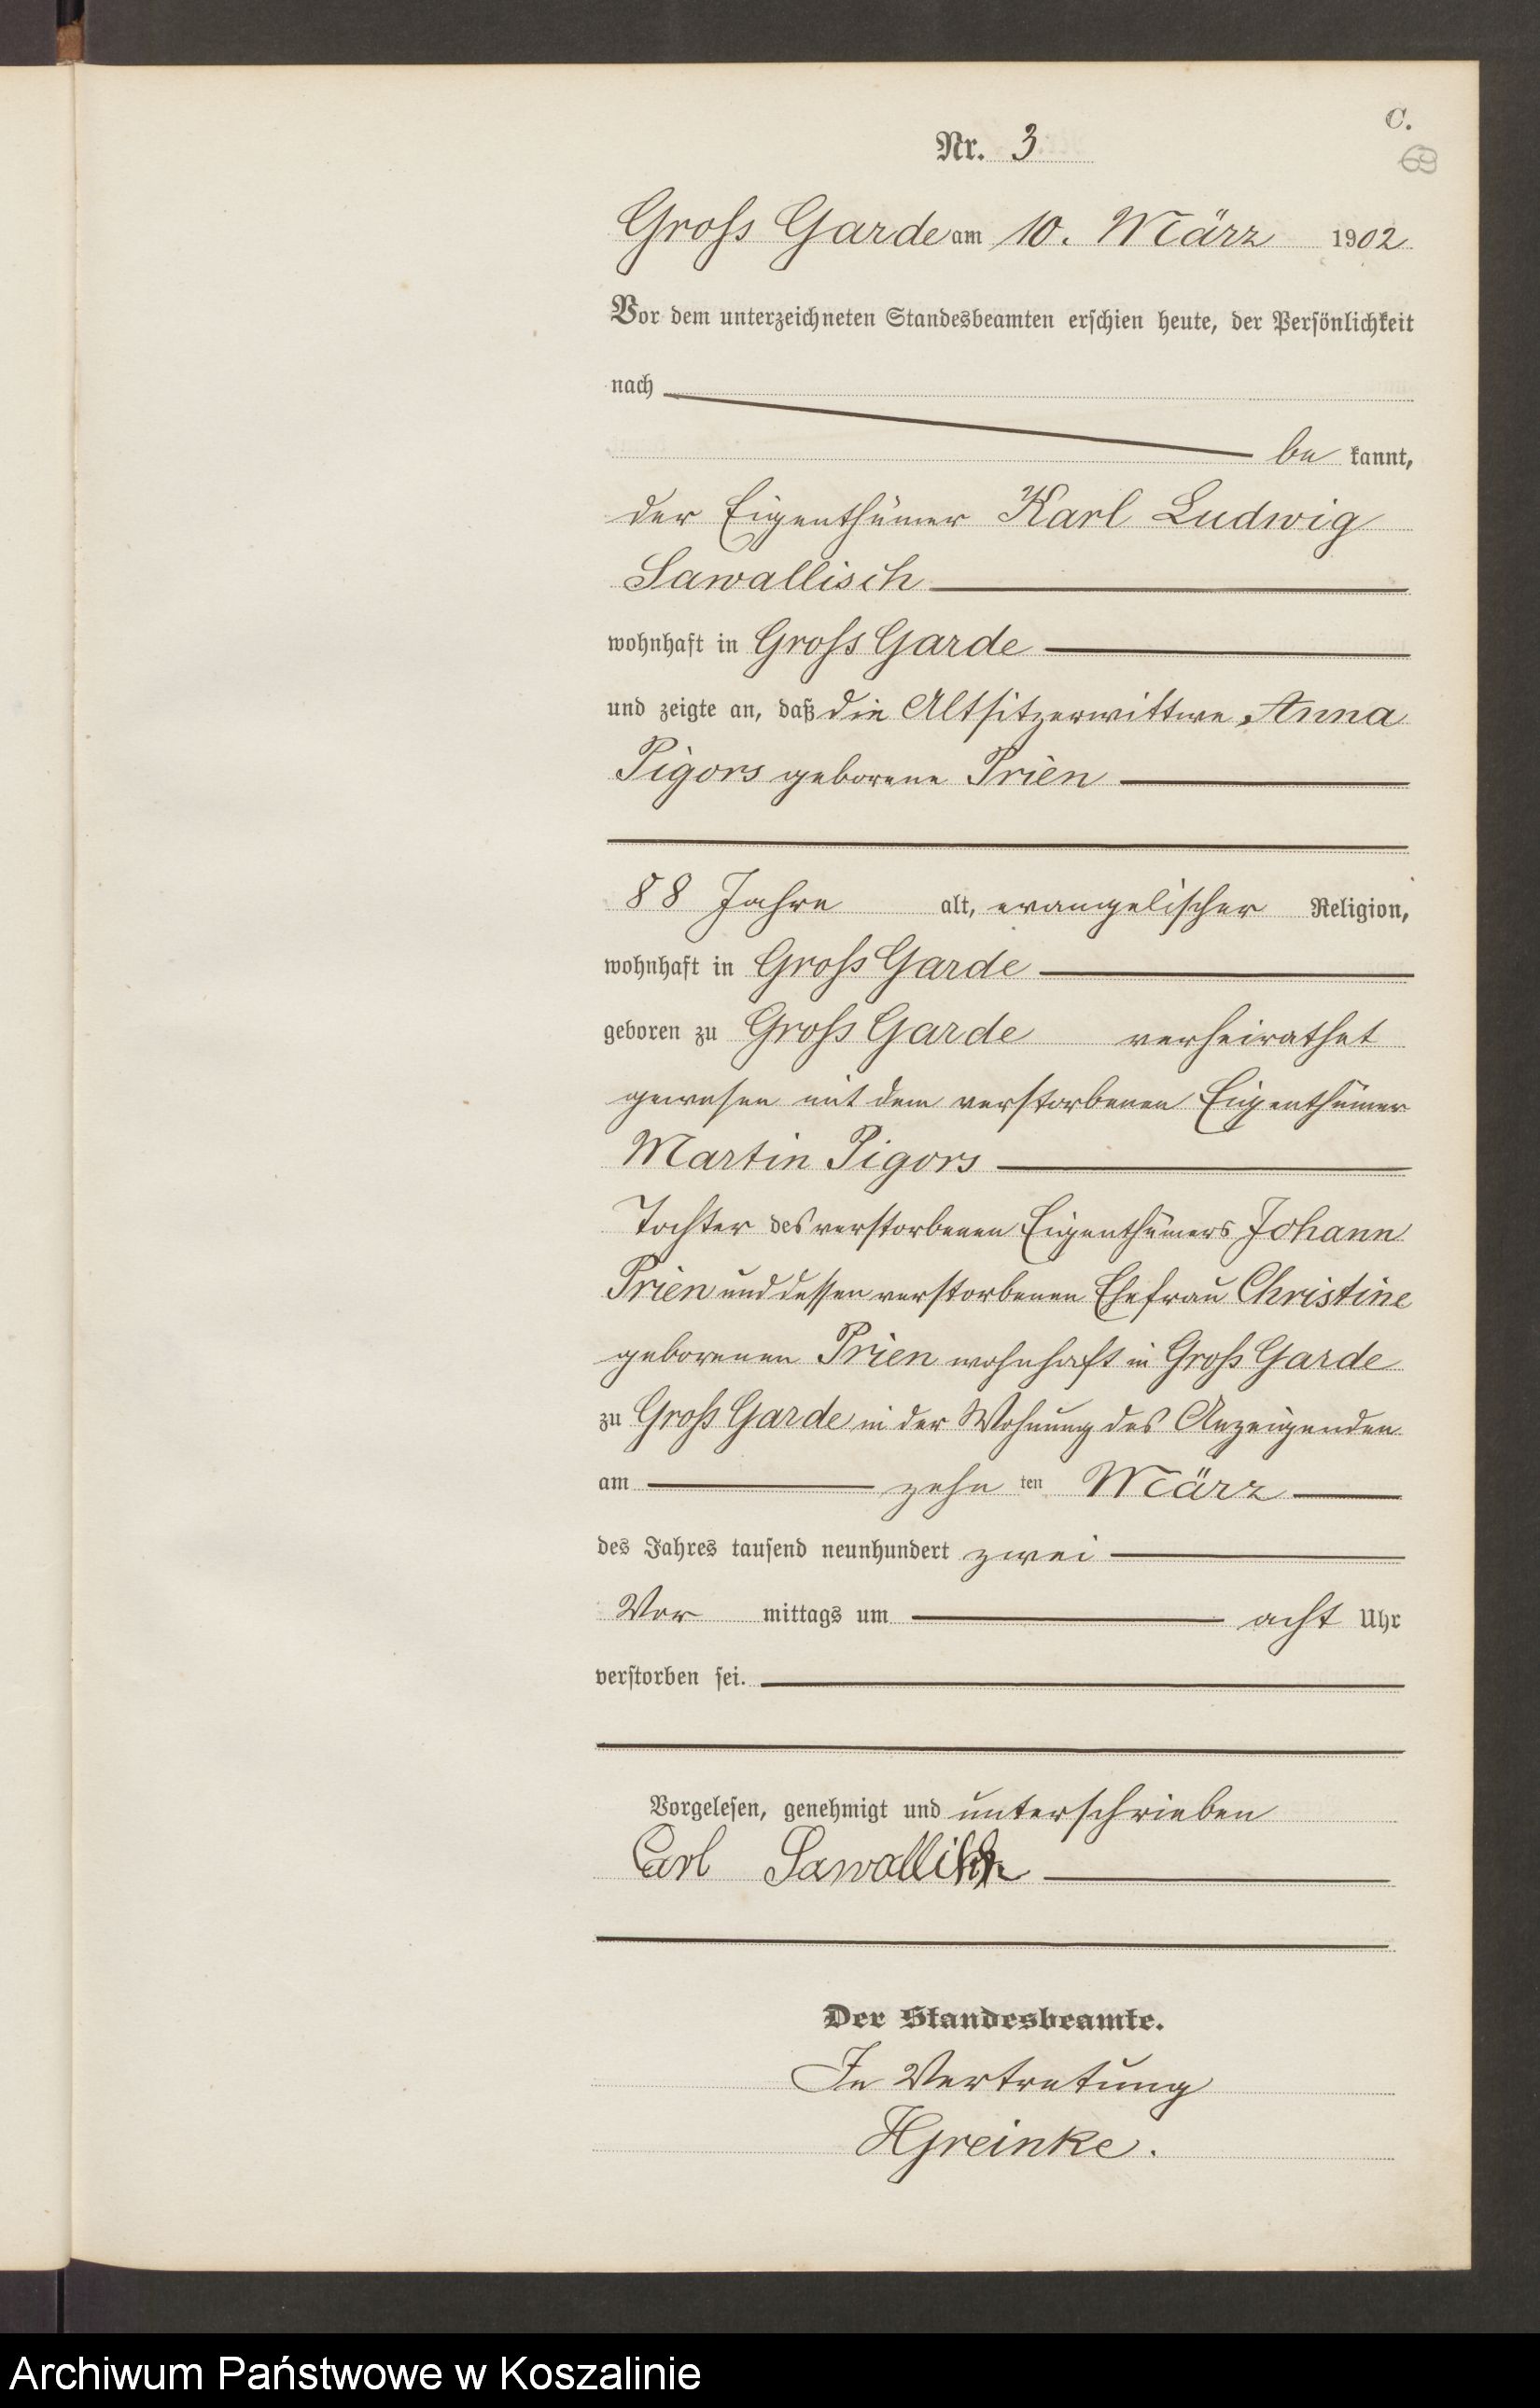 C.
Nr. 3
69
Gross Garde am 10. März 1902
Vor dem unterzeichneten Standesbeamten erschien heute, der Persönlichkeit
nach
be kannt,
der Eigenthümer Karl Ludwig
Sawallisch
wohnhaft in Gross Garde
und zeigte an, daß die Altsitzerwittwe Anna
Pigors geborene Prien
88 Jahre alt, evangelischer Religion,
wohnhaft in Gross Garde
geboren zu Gross Garde verheirathet
gewesen mit dem verstorbenen Eigenthümer
Martin Pigors
Tochter des verstorbenen Eigenthümers Johann
Prien und dessen verstorbenen Ehefrau Christine
geborenen Prien wohnhaft in Gross Garde
zu Gross Garde in der Wohnung des Anzeigenden
am zehn ten März
des Jahres tausend neunhundert zwei
Vor mittags um acht Uhr
verstorben sei.
Vorgelesen, genehmigt und unterschrieben
Carl Sawallisch
Der Standesbeamte.
In Vertretung
HGreinke.
Archiwum Państwowe w Koszalinie